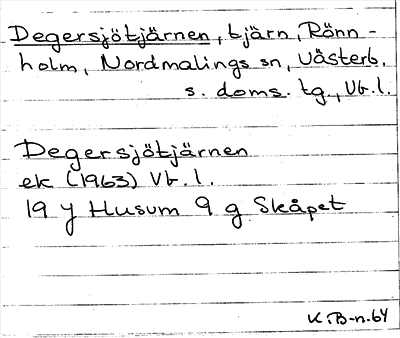 Degersjötjärnen, tjärn, Rönn-
holm, Nordmalings sn, Västerb.
s. doms. tg., Vb. l.
Degersjötjärnen
ek (1963) Vb. l.
19 J Husum 9 g Skåpet
K. B-n. 64